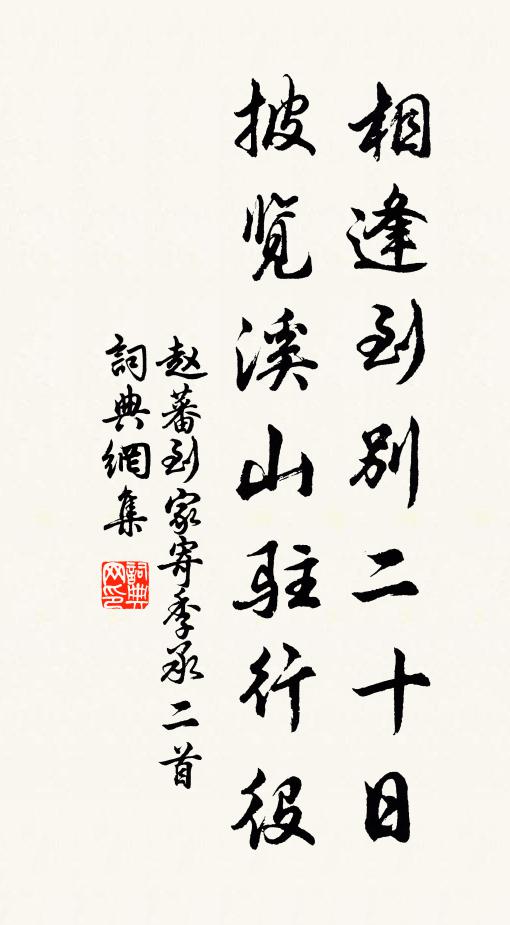 相逢到别二十日
披览溪山駐行役
赵蕃到家寄季承二首
詞典網集
詞典网印